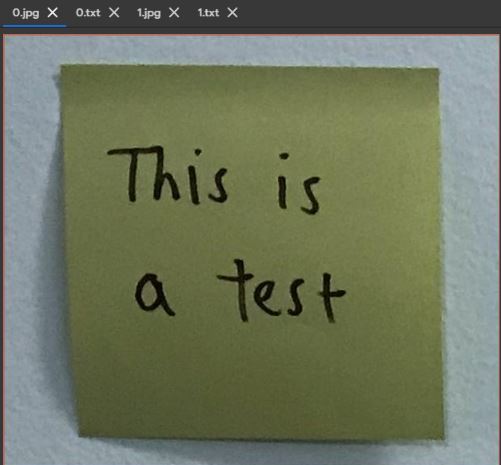 0.jpg × 0.txt × 1.jpg × 1.txt ×
This is
a test